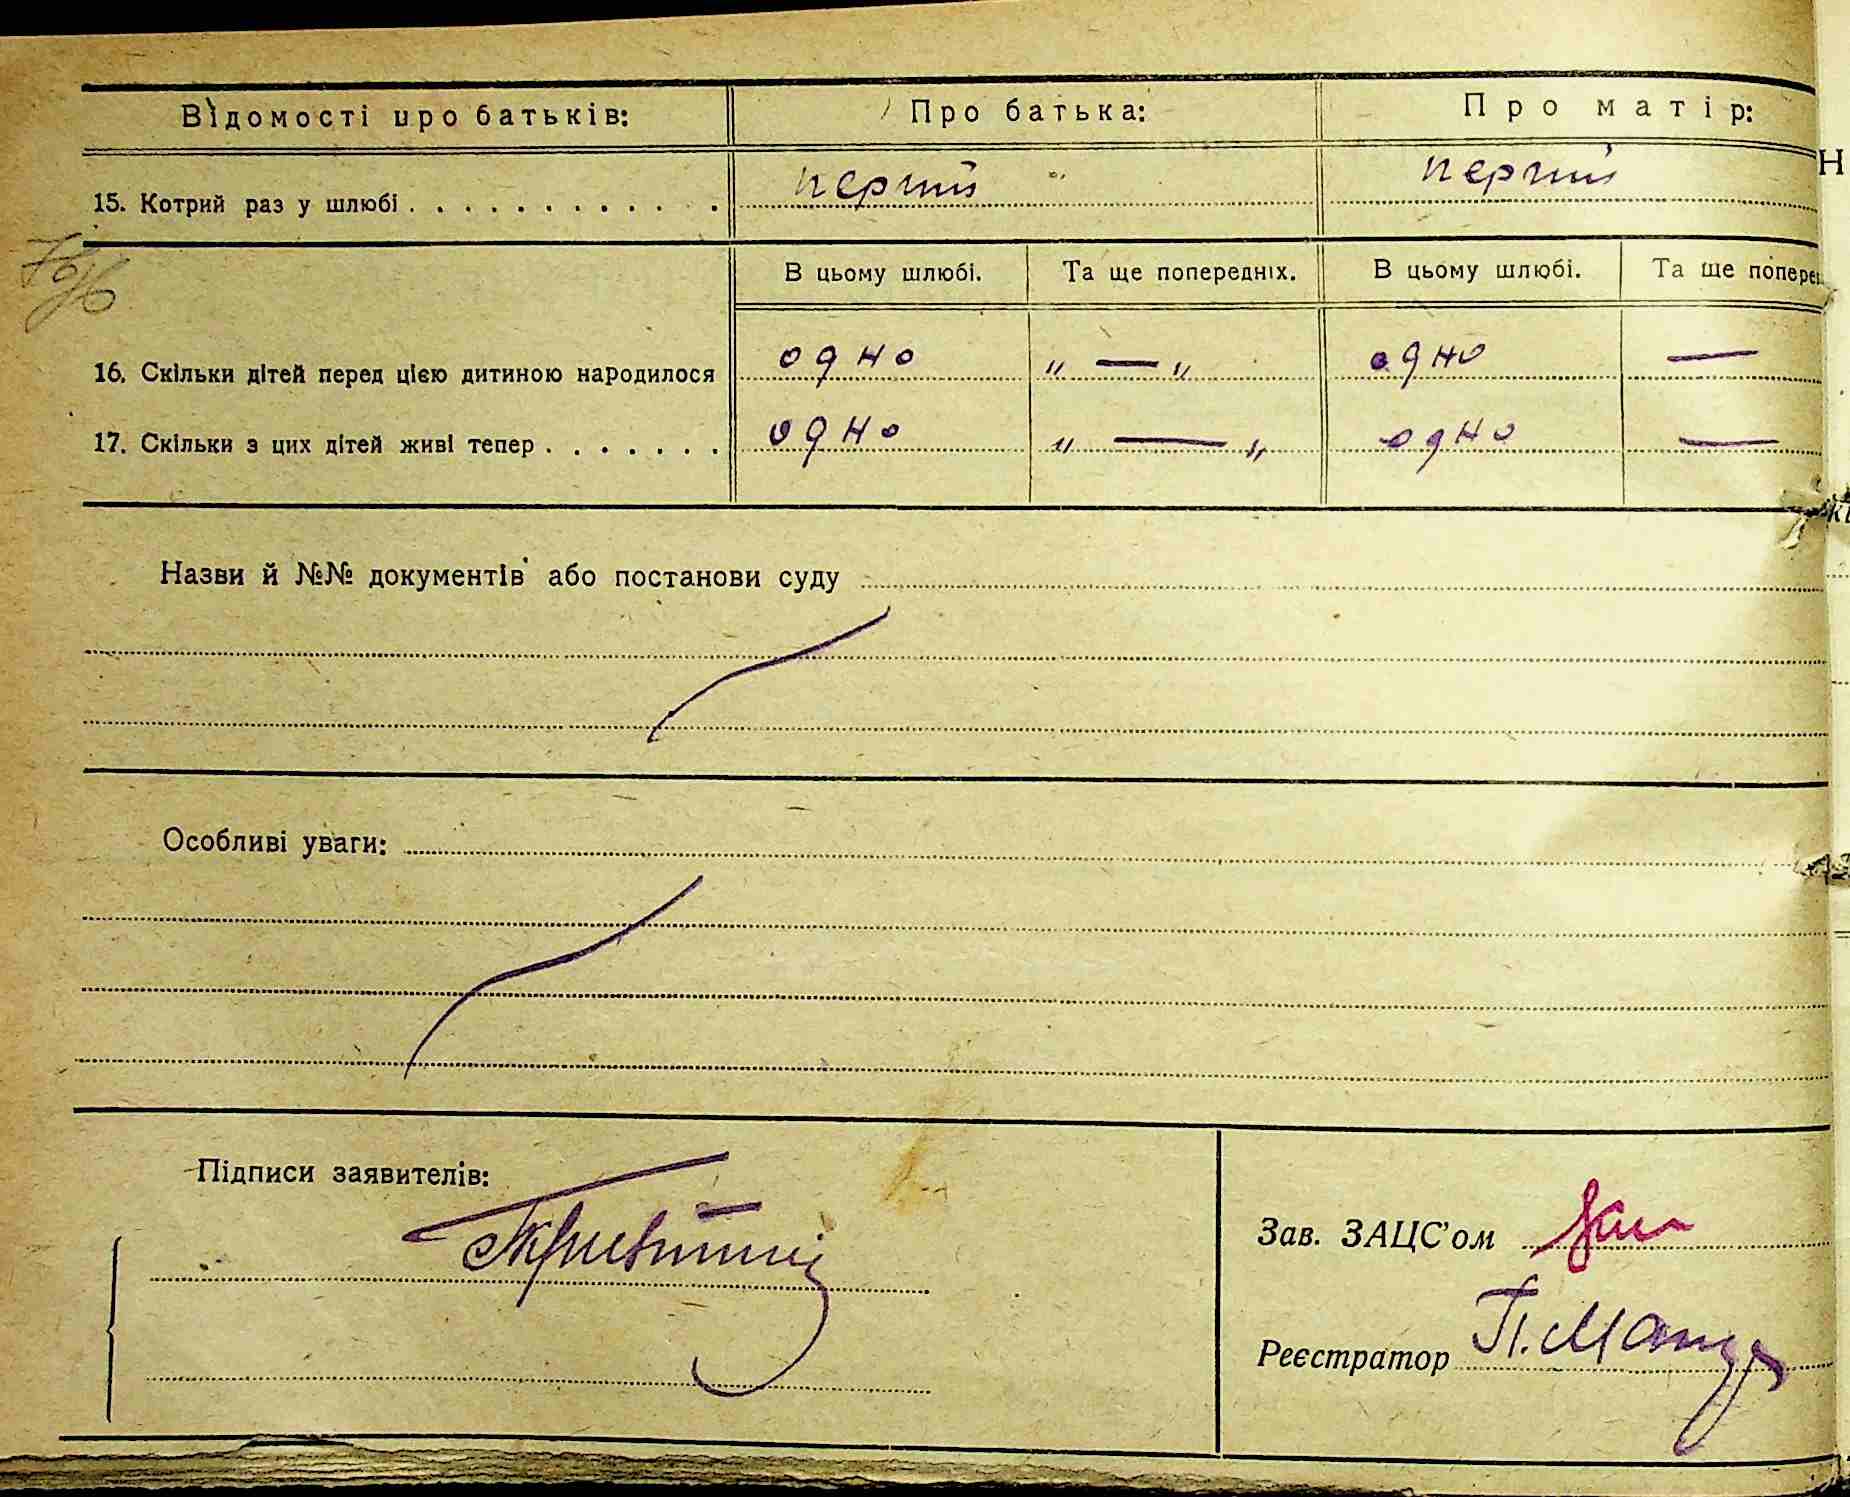 Відомості про батьків: Про батька: Про матір:
15. Котрий раз у шлюбі . . . . . . . . . . . . перший перший
В цьому шлюбі. Та ще попередніх. В цьому шлюбі. Та ще попере
16. Скільки дітей перед цією дитиною народилося одно „ — „ одно —
17. Скільки з цих дітей живі тепер . . . . . . . одно „ — „ одно —
Назви й №№ документів або постанови суду
Особливі уваги:
Підписи заявителів:
Зав. ЗАЦС'ом
Реєстратор П.